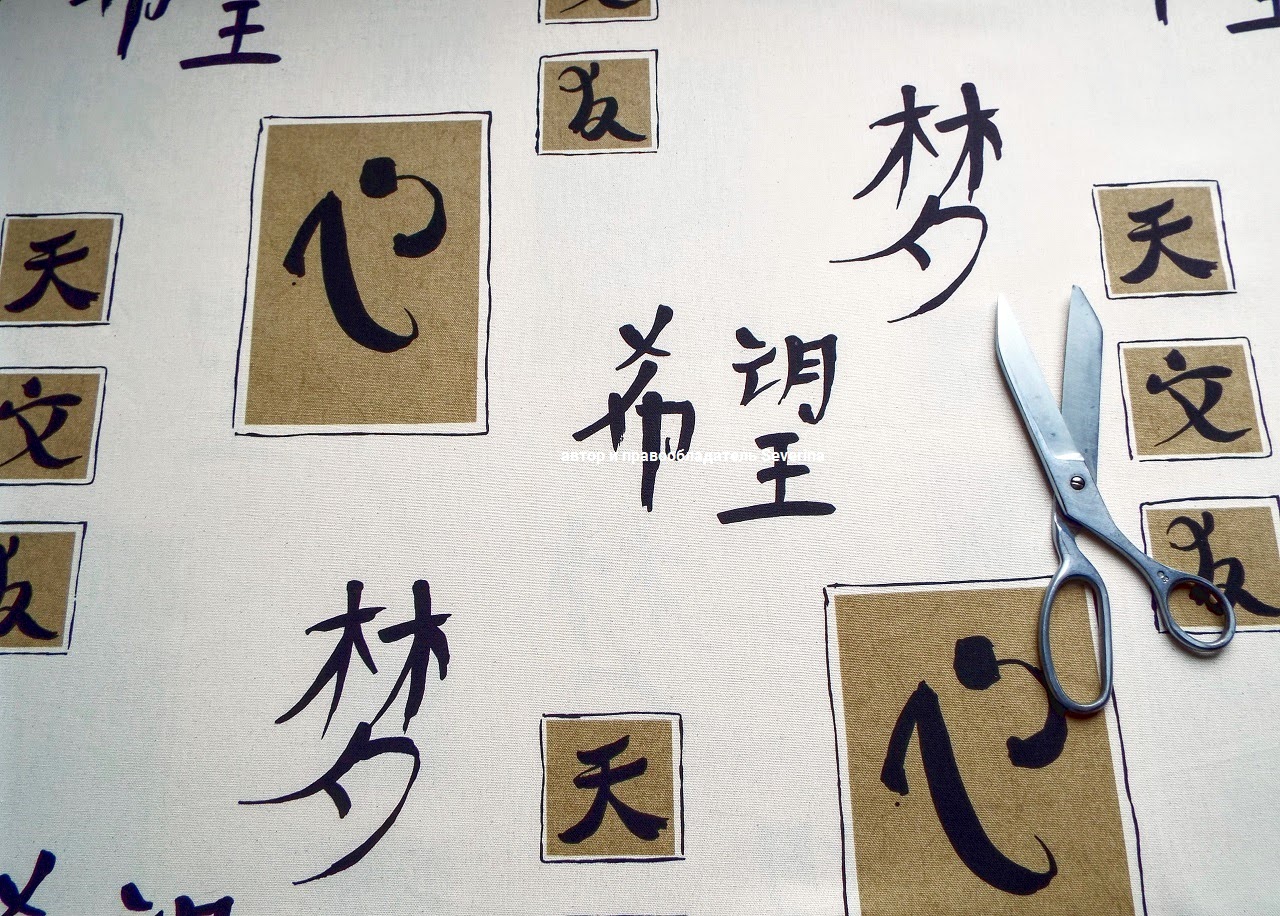 希望
友
心
梦
天
天
文
文
希望
автор и правообладатель Severina
友
友
梦
天
心
希望